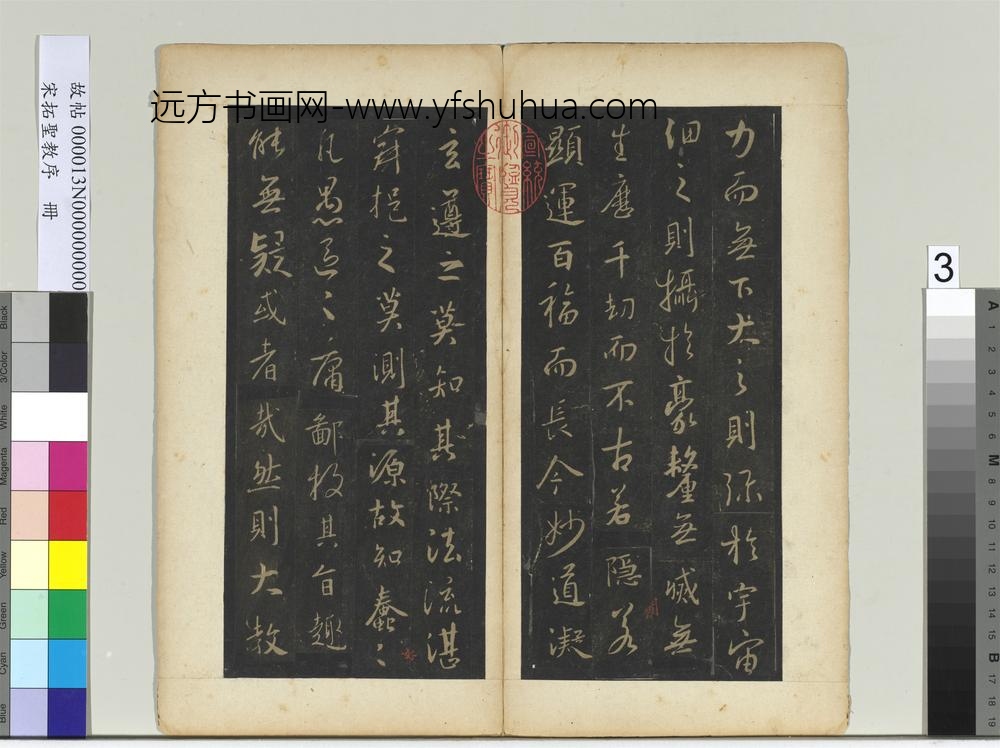 远方书画网-www.yfshuhua.com
故帖 000013N000000000
宋拓聖教序 冊
力而無下大之則弥於宇宙
細之則攝於豪釐無滅無
生歷千劫而不古若隱若
顯運百福而長今妙道凝
玄遵之莫知其際法流湛
寂挹之莫測其源故知蠢〻
凡愚區〻庸鄙投其旨趣
能無疑或者哉然則大教
宣統御覽之寶
3
Black
3/Color
White
Magenta
Red
Yellow
Green
Cyan
Blue
A 1 2 3 4 5 6 M 8 9 10 11 12 13 14 15 B 17 18 19